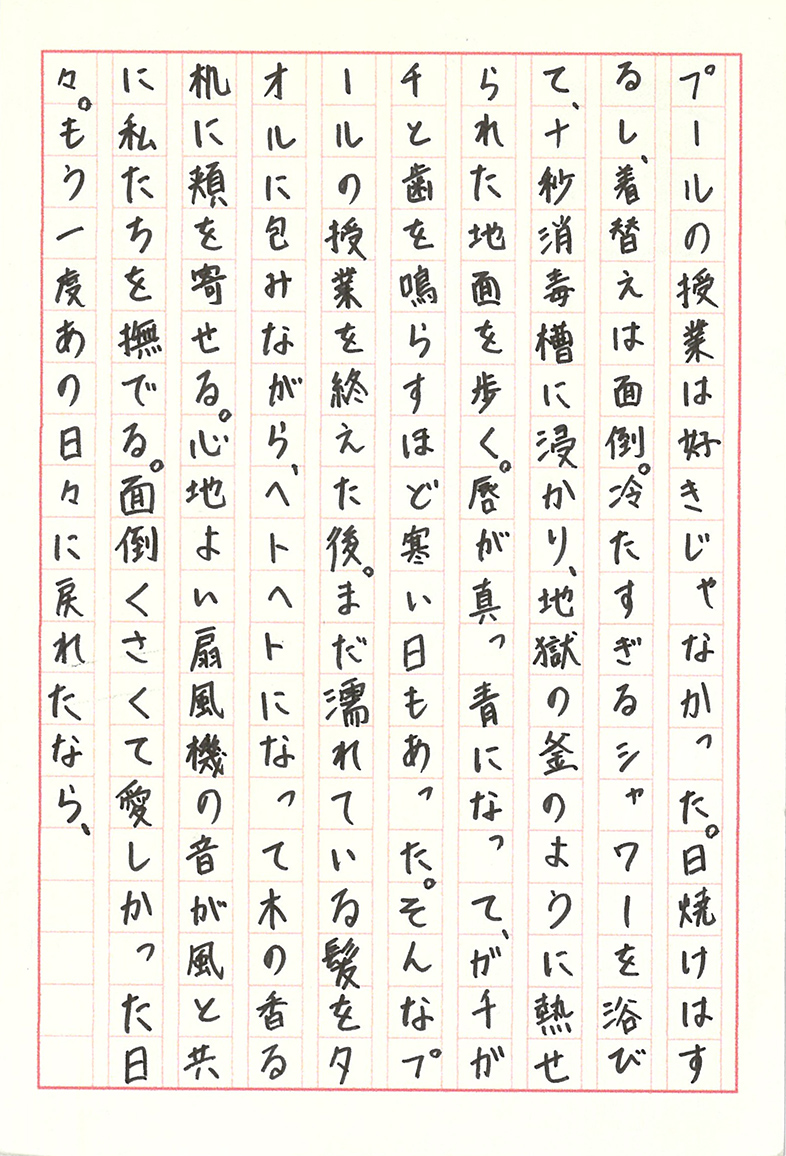 プールの授業は好きじゃなかった。日焼けはす
るし、着替えは面倒。冷たすぎるシャワーを浴び
て、十秒消毒槽に浸かり、地獄の釜のように熱せ
られた地面を歩く。唇が真っ青になって、ガチガ
チと歯を鳴らすほど寒い日もあった。そんなプ
ールの授業を終えた後。まだ濡れている髪をタ
オルに包みながら、ヘトヘトになって木の香る
机に頬を寄せる。心地よい扇風機の音が風と共
に私たちを撫でる。面倒くさくて愛しかった日
々。もう一度あの日々に戻れたなら、